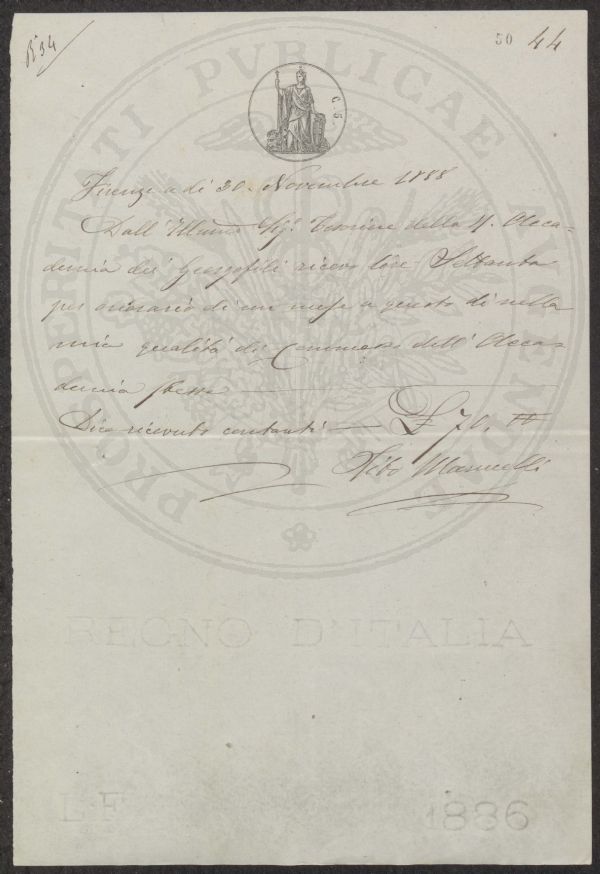 N° 34
50 44
C. 5.
Firenze a di 30. Novembre 1888
Dall' Illmo Sigr. Tesoriere della R. Acca=
demia dei Georgofili ricevo lire Settanta
per onorario di un mese a questo dì nella
mia qualità di Commesso dell' Acca=
demia stessa
Dico ricevuto contanti — £ 70. "
Mannelli
PROSPERITATI PVBLICAE AVGENDAE
REGNO D'ITALIA
L.F. 1886